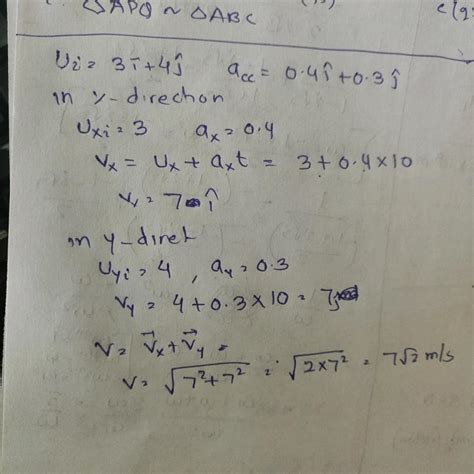 △APQ ~ △ABC
Ui = 3î+4ĵ   acc = 0.4î+0.3ĵ
in x-direction
Uxi = 3   ax = 0.4
Vx = Ux + axt = 3+0.4×10
Vx = 7 î
in y-diret
Uyi = 4 , ay = 0.3
Vy = 4+0.3×10 = 7ĵ
V = V⃗x+V⃗y =
V = √7²+7² = √2×7² = 7√2 m/s